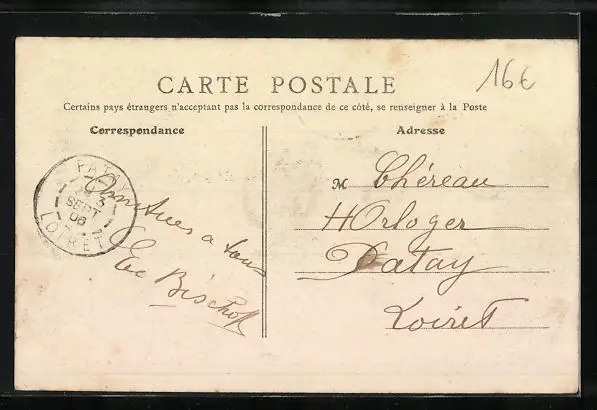 CARTE POSTALE
16€
Certains pays étrangers n'acceptant pas la correspondance de ce côté, se renseigner à la Poste
Correspondance
Adresse
PATAY
3
SEPT
06
LOIRET
Amitiés a tous
Bischoff
M Chéreau
Horloger
Patay
Loiret